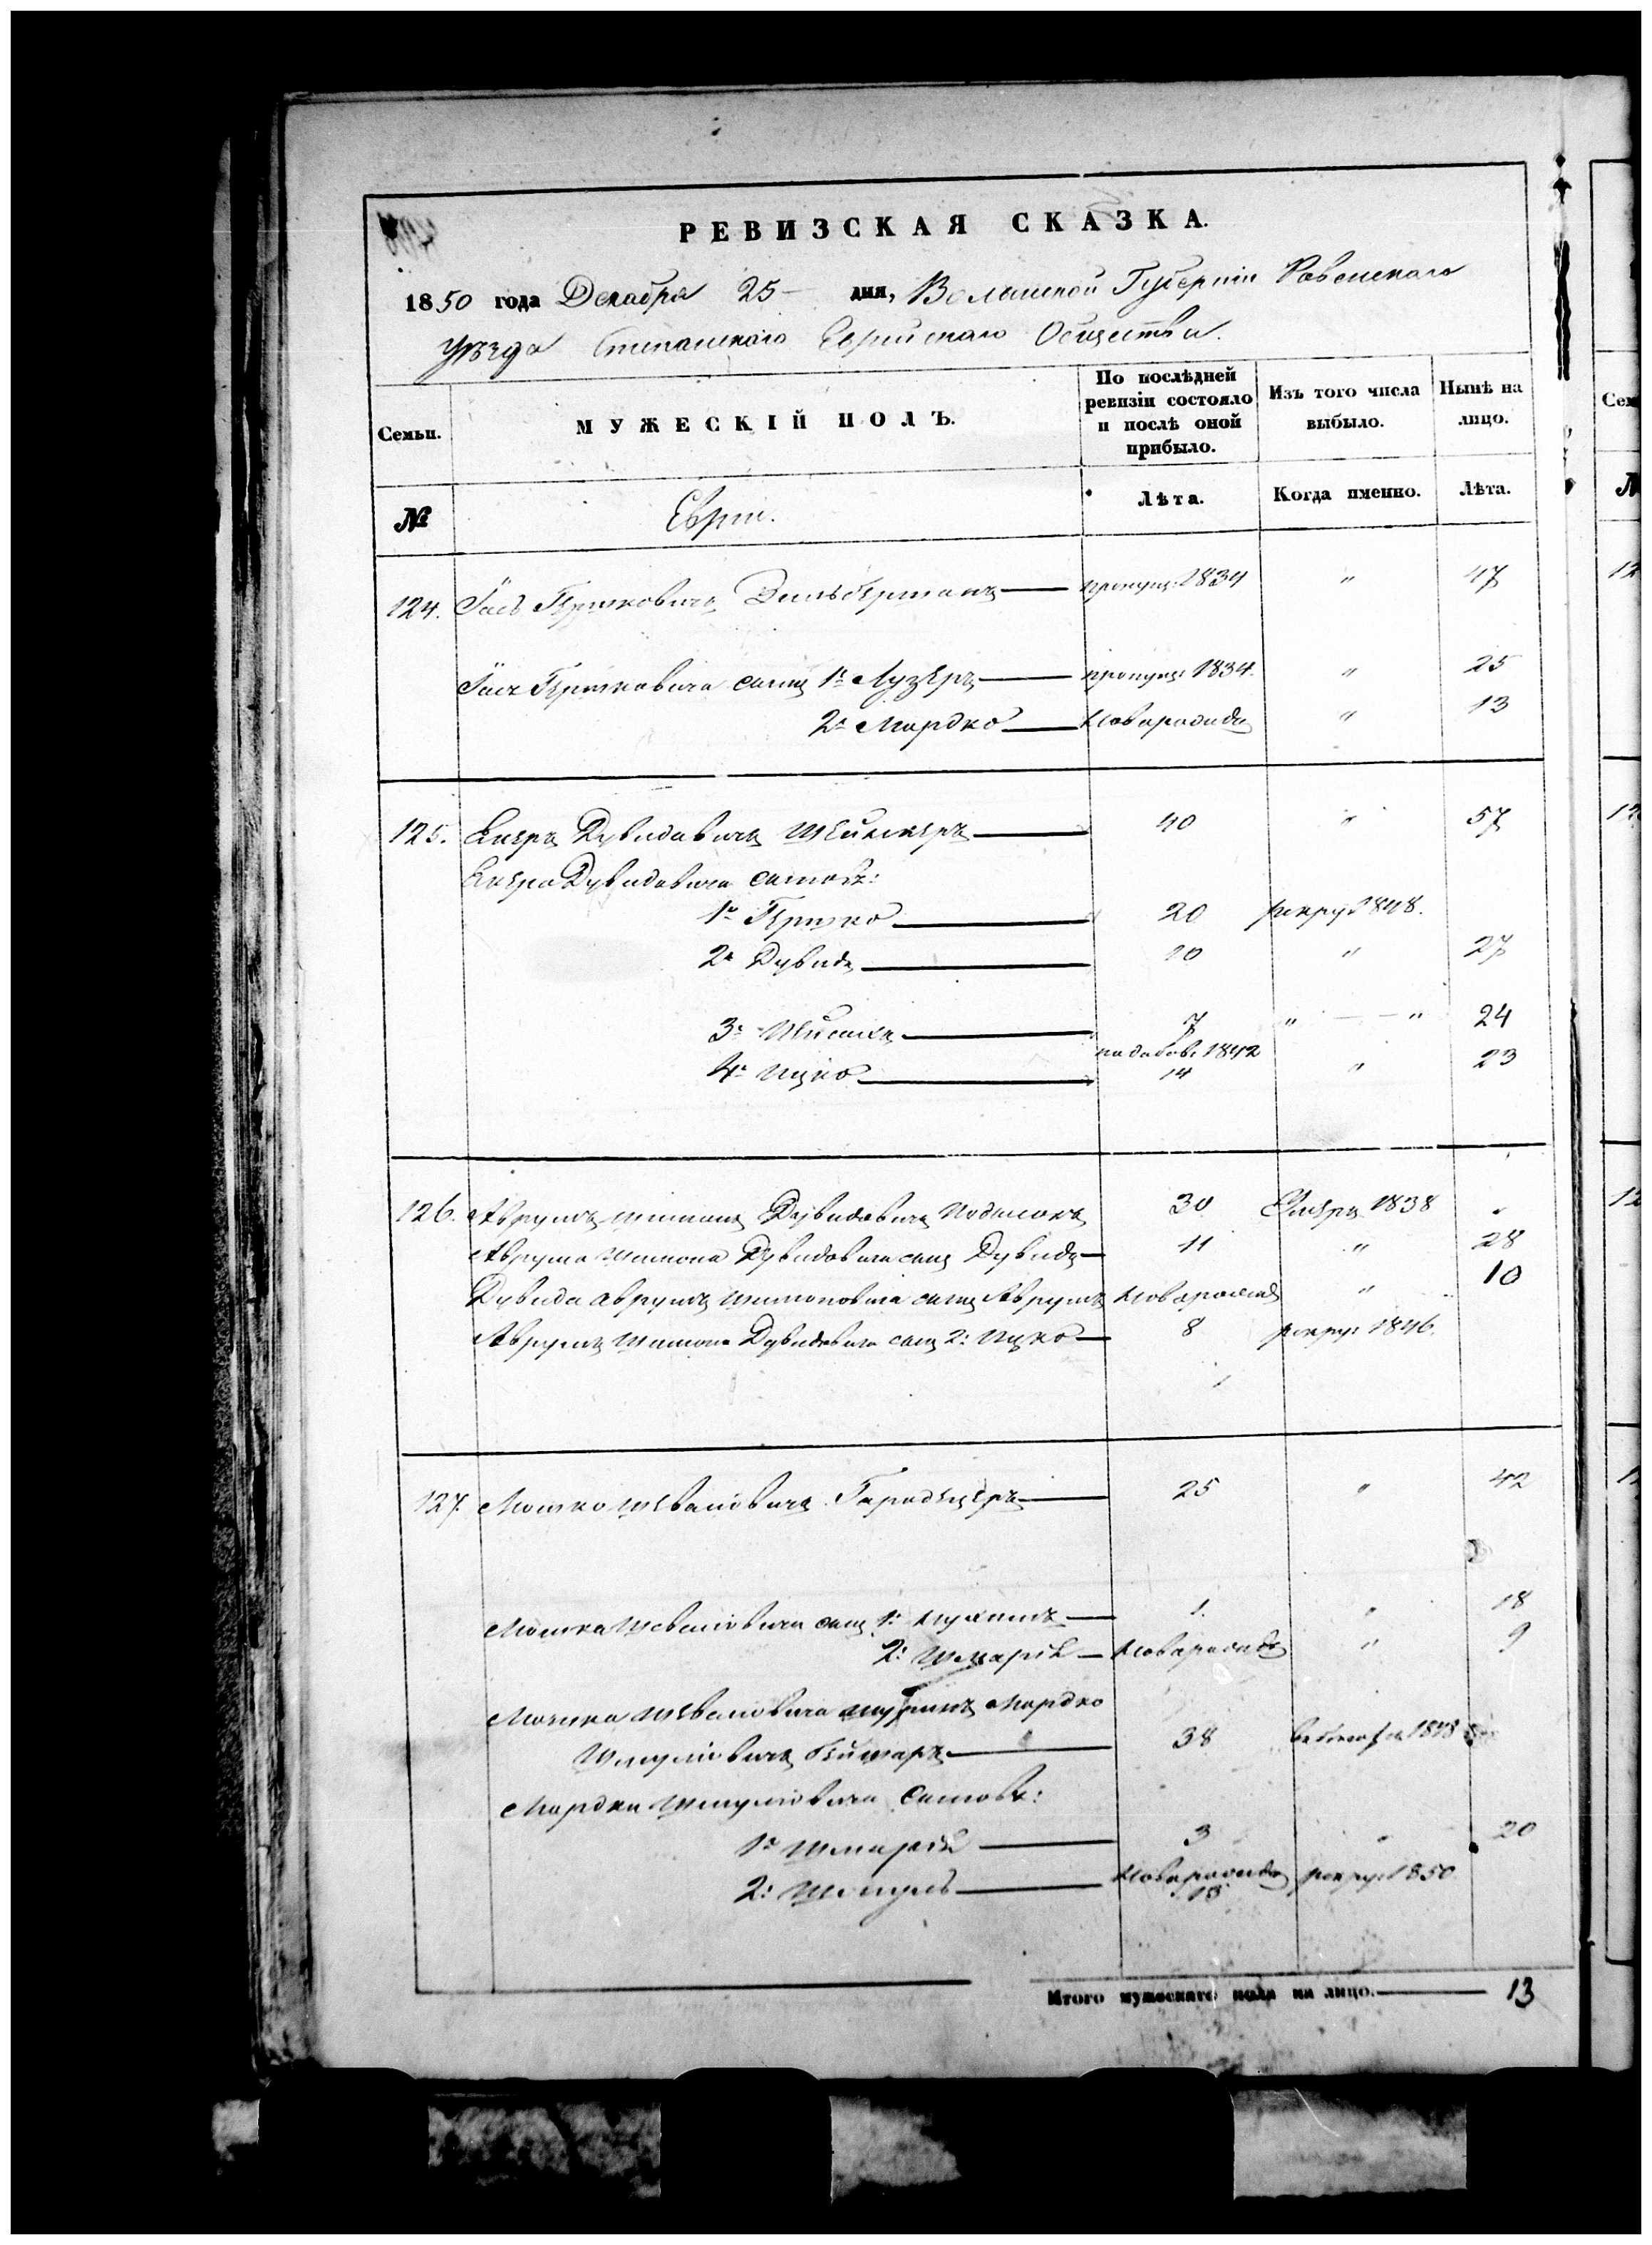 РЕВИЗСКАЯ СКАЗКА.
1850 года Декабря 25 дня, Волынской Губерніи Ровенскаго
уѣзда Степанскаго Еврейскаго Общества.
Семьи.
МУЖЕСКІЙ ПОЛЪ.
По послѣдней ревизіи состояло и послѣ оной прибыло.
Изъ того числа выбыло.
Нынѣ на лицо.
№
Евреи.
Лѣта.
Когда именно.
Лѣта.
124. Гершковичъ Зильберманъ — пропущ: 1834 " 47
Гершковича сынъ 1й Лузеръ — пропущ: 1834. " 25
2й Мордко — новорожден " 13
125. Дувидовичъ — 40 " 57
Дувидовича сыновья:
1й Гершко — 20 рекру 1848.
2й Дувидъ — 10 " 27
3й — 7 " — " 24
4й Ицко — по добов: 1842 14 " 23
126. Аврумъ Шимонъ Дувидовичъ 30 Умеръ 1838
Аврума Шимона Дувидовича сынъ Дувидъ — 11 " 28
Дувида Аврумъ Шимоновича сынъ Аврумъ новорожд " 10
Аврумъ Шимона Дувидовича сынъ 2й Ицко — 8 рекру: 1846.
127. Мошко Городецеръ — 25 " 42
Мошка сынъ 1й — 1. " 18
2й Шмарія — новорожден " 9
Мошка шуринъ Мордко
Шмуліовичъ — 38 1848
Мордка Шмуліовича сыновья:
1й Шмарія — 3 " 20
2й Шмуль — новорожден 18 рекру: 1850
Итого мужескаго пола на лицо. — 13